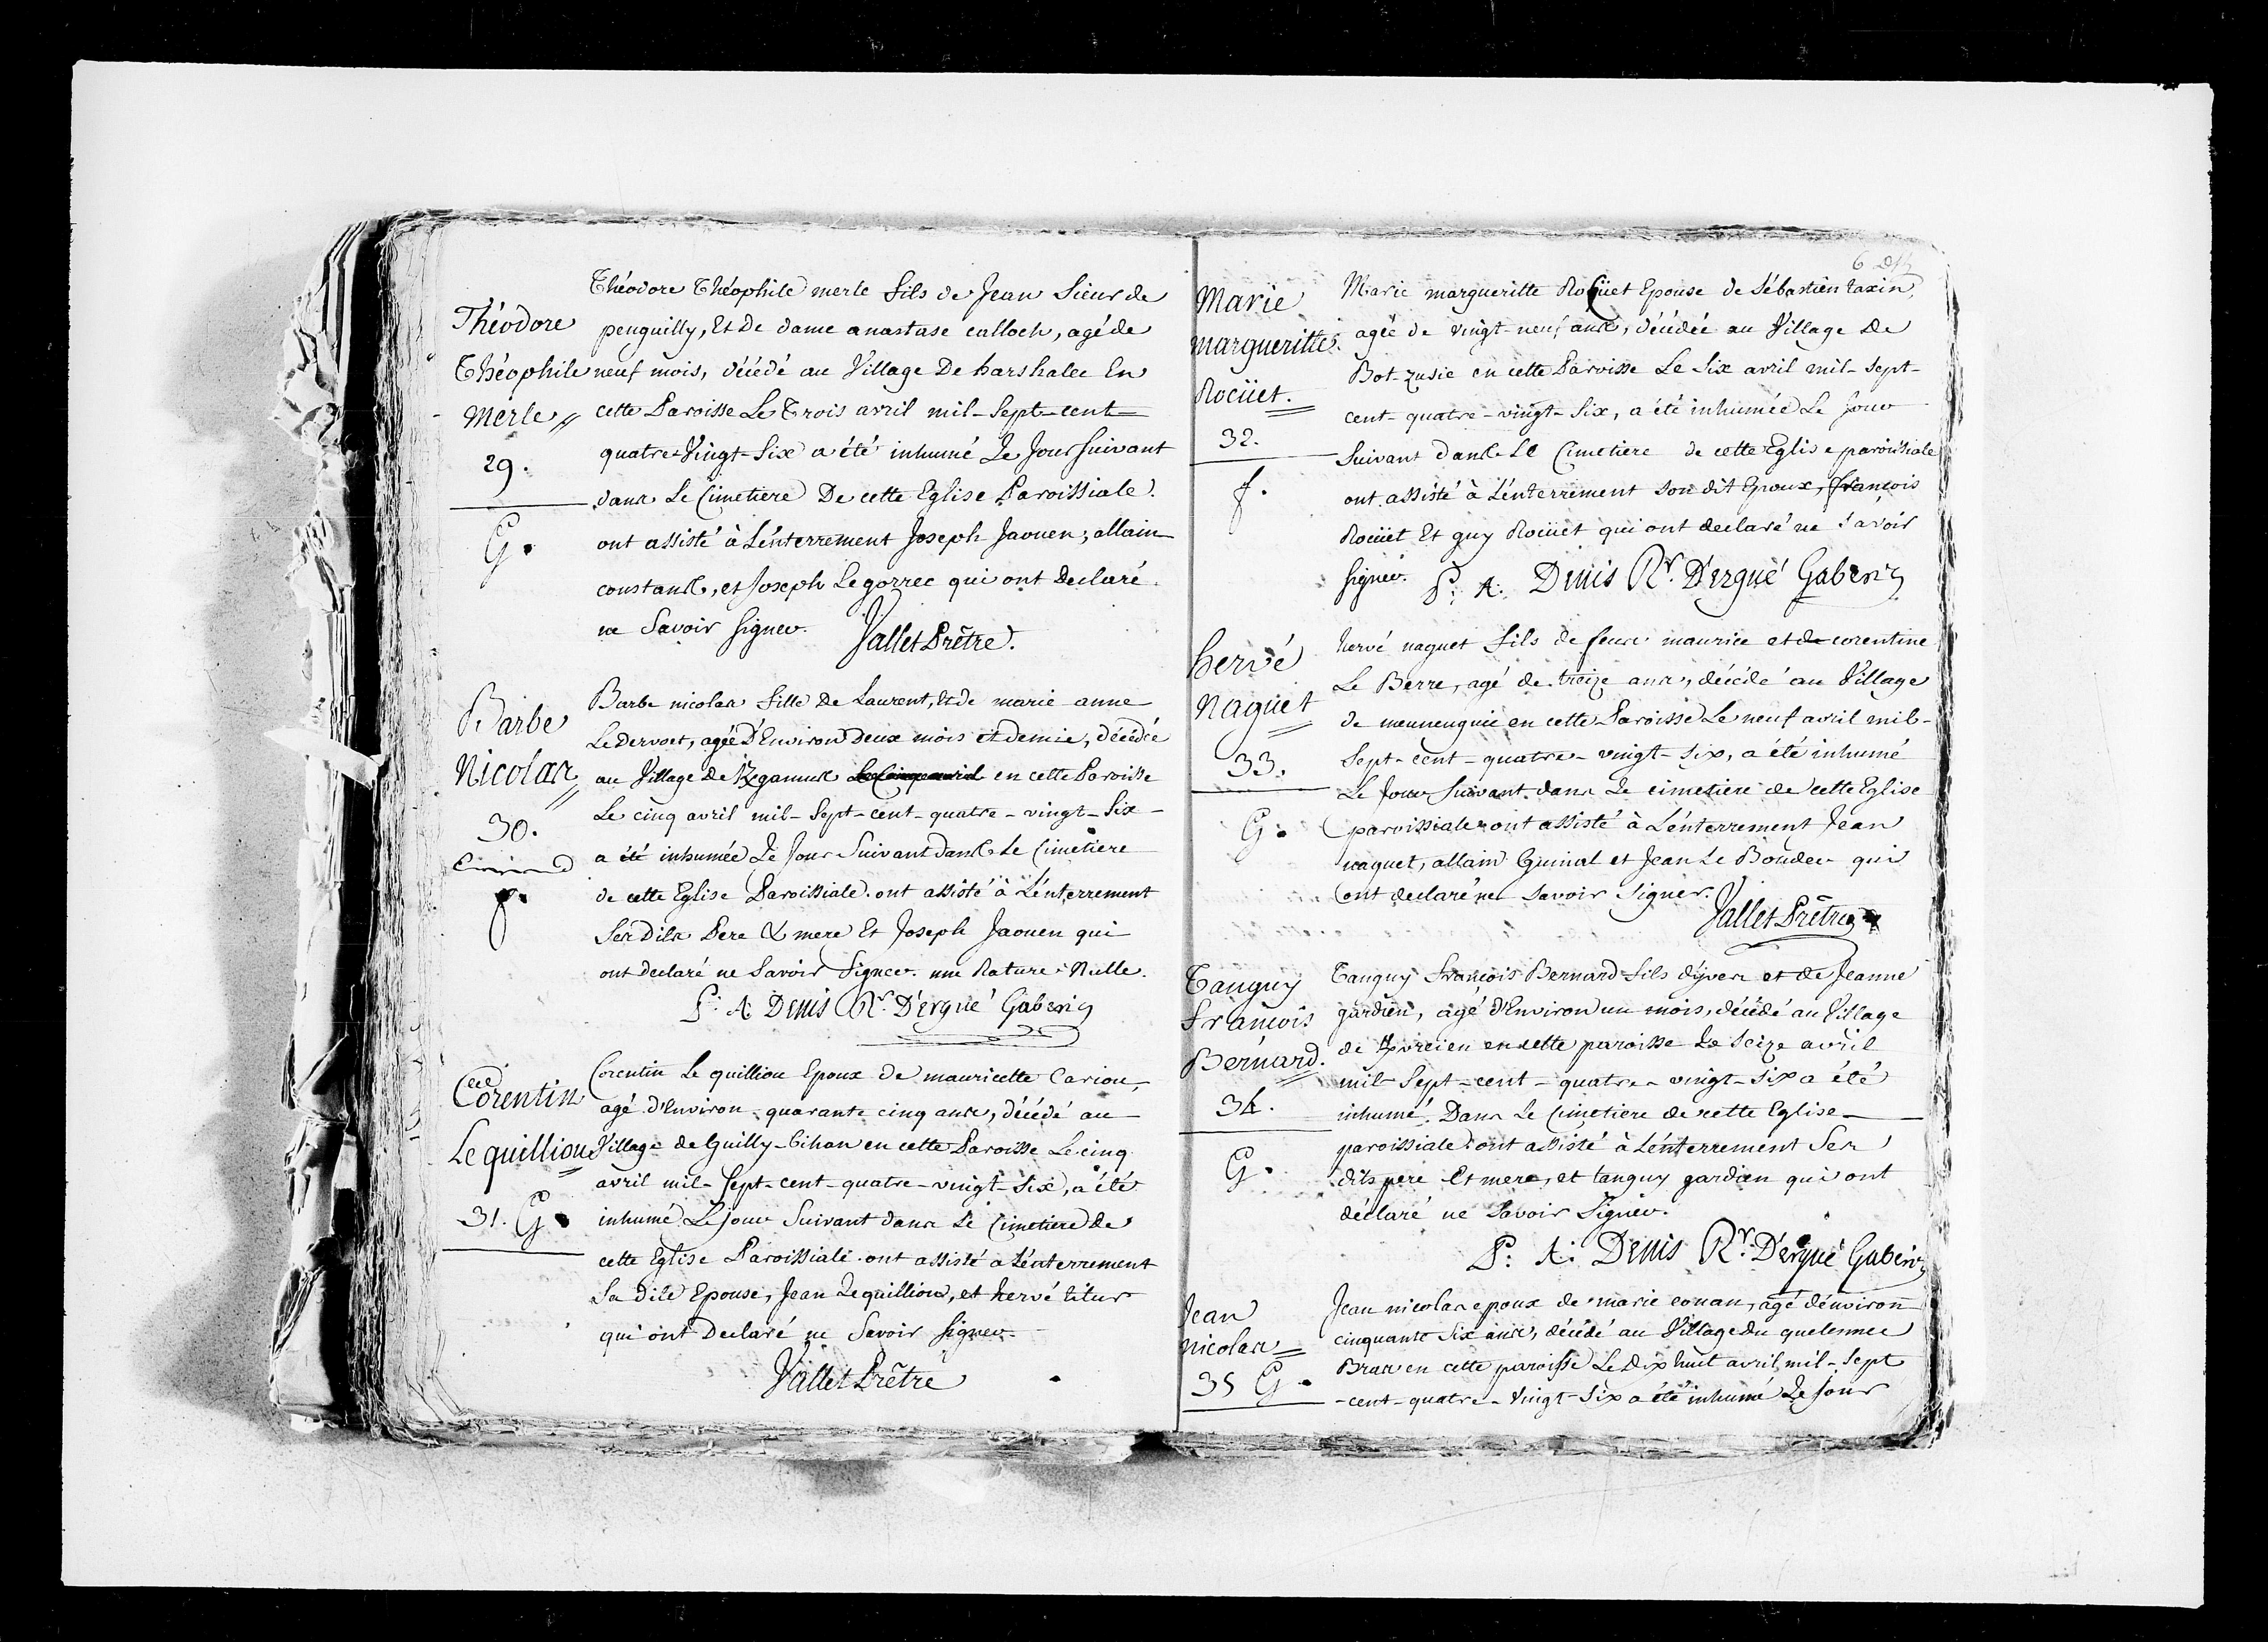 Théodore
Théophile
Merle
29.
G.
Théodore Théophile merle fils de Jean Sieur de
penguilly, Et De dame anastase calloch, agé de
neuf mois, décédé au Village De En
cette Paroisse Le Trois avril mil-Sept-cent
quatre-Vingt-Six a été inhumé Le Jour suivant
dans Le Cimetiere De cette Eglise Paroissiale.
ont assisté à L'énterrement Joseph Jaouen, allain
constans, et Joseph Legorrec qui ont Declaré
ne Savoir signer. Vallet Prêtre.
Barbe
Nicolas
30.
f.
Barbe nicolas fille De Laurent, Et de marie anne
Le Dervoet, agée D'Environ Deux mois et demie, décédée
au Village De en cette Paroisse
Le cinq avril mil-Sept-cent-quatre-vingt-Six
a été inhumée Le Jour Suivant dans Le Cimetiere
de cette Eglise Paroissiale. ont assisté à L'énterrement
Ses Dits Pere & mere Et Joseph Jaouen qui
ont declaré ne Savoir Signer. une Rature Nulle.
P: A: Denis Rr. D'ergué Gaberic
Corentin
Le quilliou
31. G.
Corentin Le quilliou Epoux de mauricette Cariou,
agé d'Environ quarante cinq ans, décédé au
Village de Guilly-bihan en cette Paroisse Le cinq
avril mil-sept-cent-quatre-vingt-Six, a été
inhumé Le jour Suivant dans Le Cimetiere de
cette Eglise Paroissiale. ont assisté a L'énterrement
Sa dite Epouse, Jean Le quilliou, et hervé
qui ont Declaré ne Savoir signer.
Vallet Prêtre
Marie
margueritte
Rocüet.
32.
f.
Marie margueritte Rocüet Epouse de Sébastien taxin,
agée de vingt-neuf ans, décédée au Village De
Bot-zusic en cette Paroisse Le Six avril mil-sept-
cent-quatre-vingt-Six, a été inhumée Le Jour
Suivant dans Le Cimetiere de cette Eglise paroissiale
ont assisté à L'énterrement son dit Epoux, françois
Rocüet Et guy Rocüet qui ont declaré ne Savoir
signer. P: A: Denis Rr. D'ergué Gaberic
hervé
Naguet
33.
G.
hervé naguet fils de feux maurice et de corentine
Le Berre, agé de treize ans, décédé au Village
de en cette Paroisse Le neuf avril mil-
Sept-cent-quatre-vingt-Six, a été inhumé
Le Jour Suivant dans Le cimetiere de cette Eglise
paroissiale ont assisté à L'énterrement Jean
naguet, allain Guinal et Jean Le Boudec qui
ont declaré ne savoir signer.
Vallet Prêtre
Tanguy
françois
Bernard.
34.
G.
Tanguy françois Bernard fils d'yves et de Jeanne
gardien, agé d'Environ un mois, décédé au Village
de en cette paroisse Le Seize avril
mil-Sept-cent-quatre-vingt-Six a été
inhumé. Dans Le Cimetiere de cette Eglise
paroissiale ont assisté à L'énterrement Ses
dits pere Et mere, et tanguy gardien qui ont
déclaré ne Savoir Signer.
P: A: Denis Rr. D'ergué Gaberic
Jean
nicolas
35 G.
Jean nicolas epoux de marie conan, agé d'environ
cinquante Six ans, décédé au Village du quelennec
Bras en cette paroisse Le Dix huit avril mil-Sept
-cent-quatre-Vingt-Six a été inhumé Le Jour